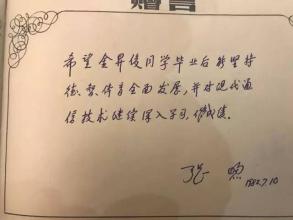 赠言
希望金昇俊同学毕业后能坚持
德、智、体全面发展，并对现代通
信技术继续深入学习，作出成绩。
张煦
1982.7.10